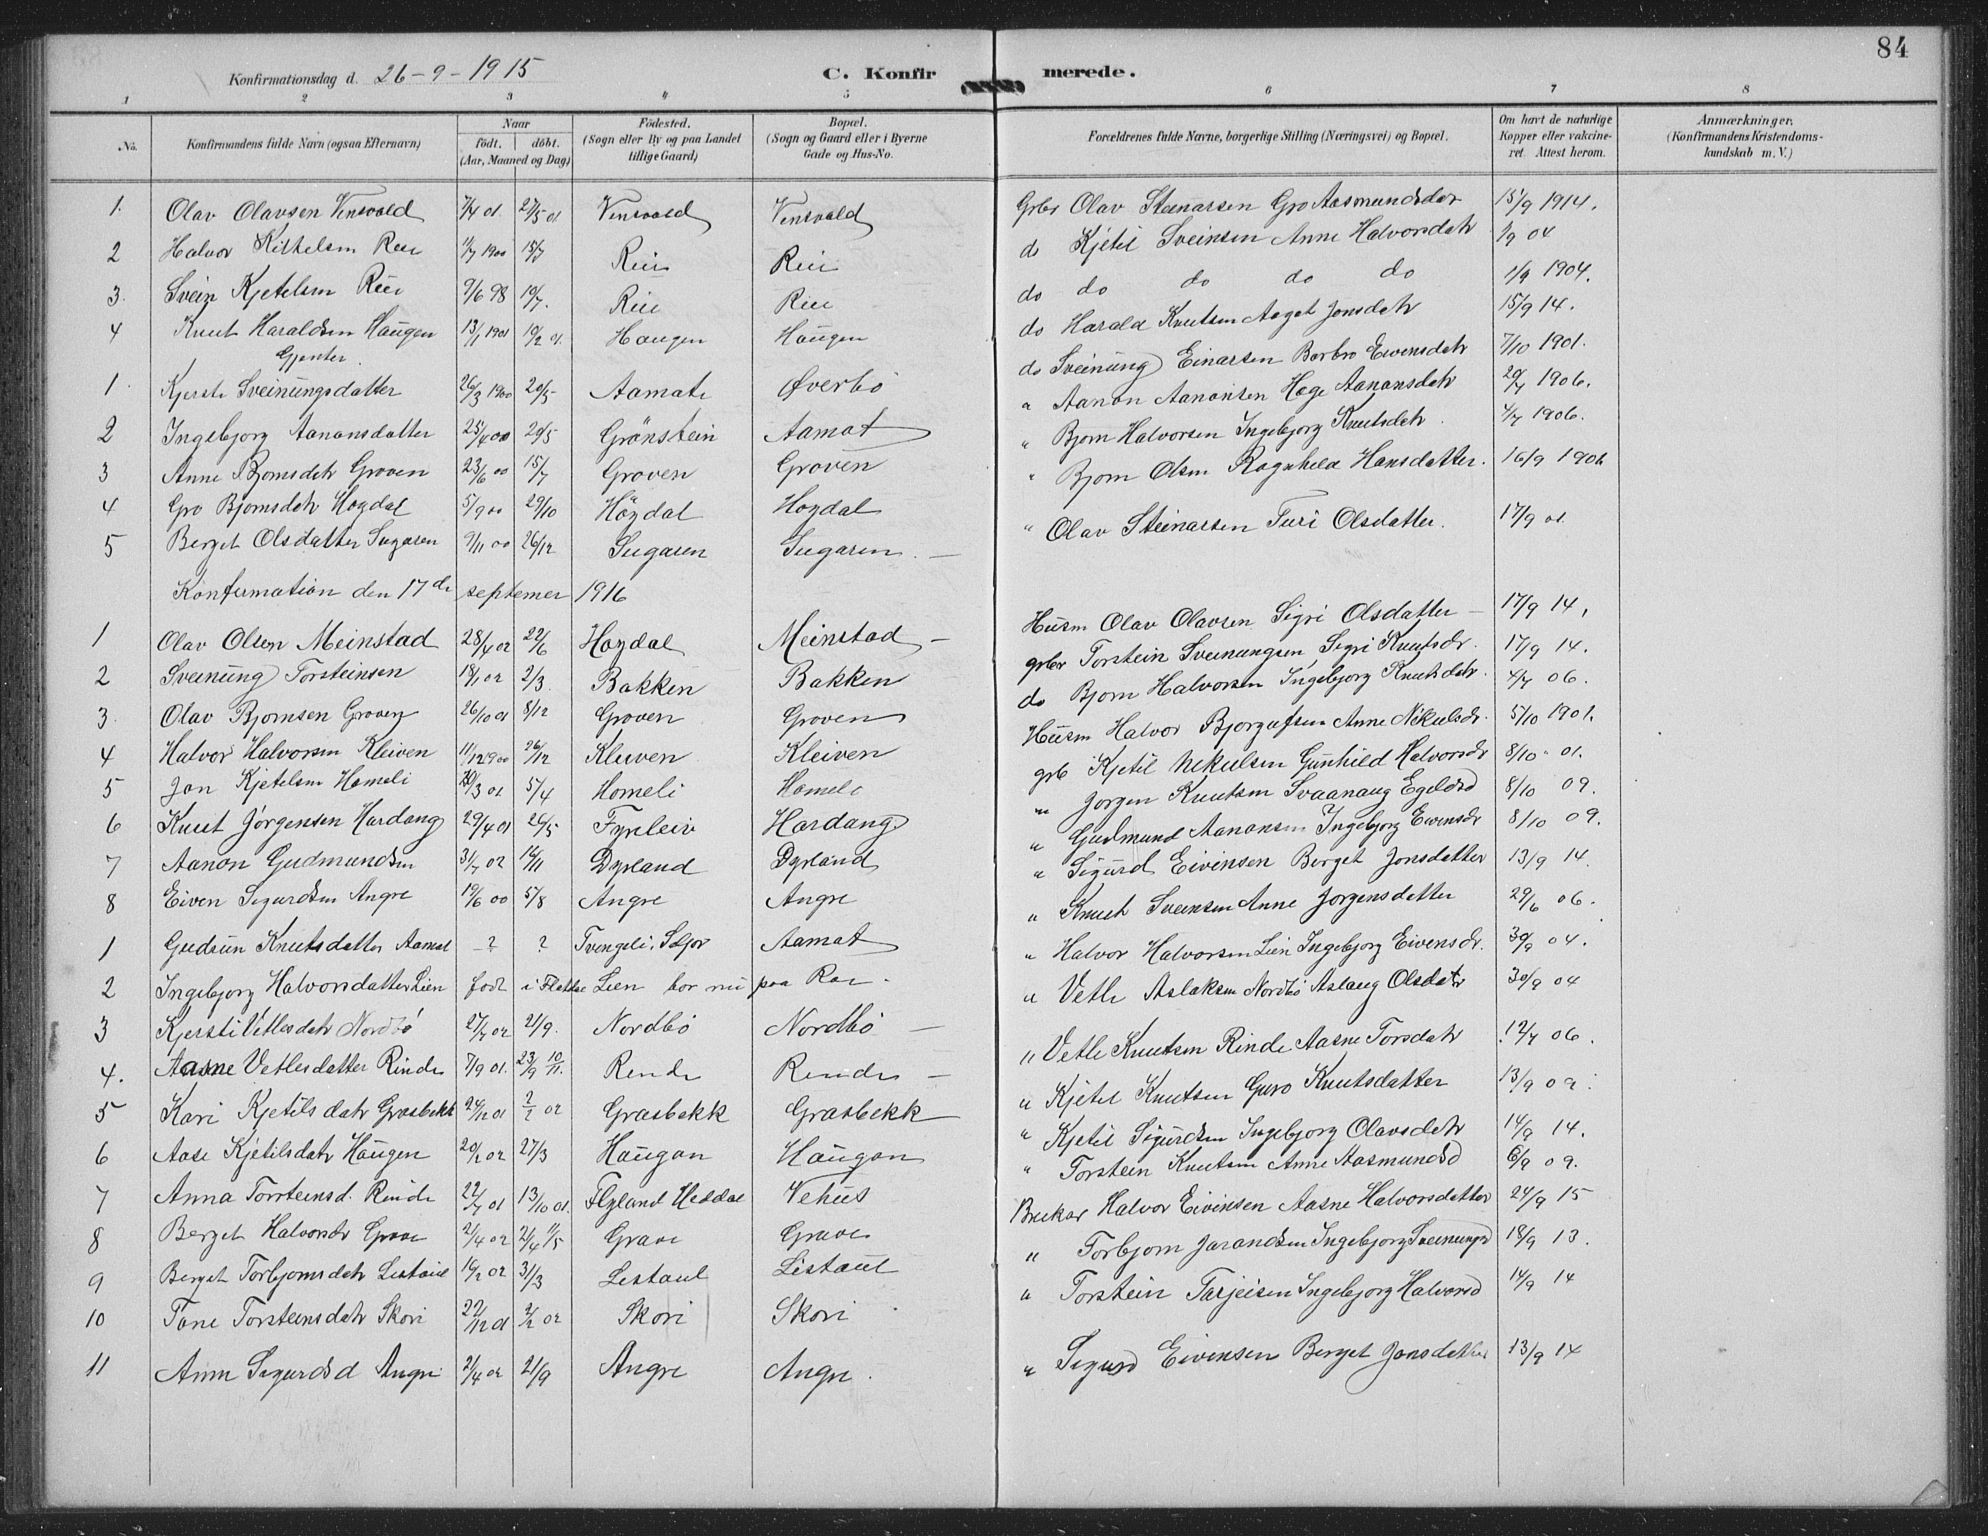 84
Konfirmationsdag d. 26-9-1915 C. Konfirmerede.
1 2 3 4 5 6 7 8
No. Konfirmandens fulde Navn (ogsaa Efternavn) Naar födt. döbt. (Aar, Maaned og Dag) Födested. (Sogn eller By og paa Landet tillige Gaard) Bopæl. (Sogn og Gaard eller i Byerne Gade og Hus-No. Forældrenes fulde Navne, borgerlige Stilling (Næringsvei) og Bopæl. Om havt de naturlige Kopper eller vakcineret. Attest herom. Anmærkninger. (Konfirmandens Kristendomskundskab m. V.)
1. Olav Olavsen Vinsvald 7/4 01. 27/5 01 Vinsvald Vinsvald Grbr Olav Steinarsen Gro Aasmundsdatr 15/9 1914.
2 Halvor Kittelsen Rue 1/7 1900 15/7 Rui Rui do Kjetil Sveinsen Anne Halvorsdatr 1/9 04
3. Svein Kjetelsen Rue 9/6 98 10/7. Rue Rue do do do do do 1/9 1904.
4 Knut Haraldsen Haugen 13/1 1901 10/2 01. Haugen Haugen do Harald Knutsen Aaget Jonsdatr 15/9 14.
Gjenter.
1 Kjersti Sveinungsdatter 26/3 1900 20/5 Aamate Øverbö do Sveinung Einarsen Barbro Eivensdatr 7/10 1901.
2 Ingebjorg Aanonsdatter 25/4 00 20/5 Grönstein Aamot " Aanon Aanonsen Hege Aanonsdatr 20/7 1906.
3 Anne Bjornsdatr Groven 23/6 00 15/7 Groven Groven " Bjorn Halvorsen Ingebjorg Knutsdatr. 4/7 1906.
4 Gro Bjornsdatr Hogdal 5/9 00 29/10 Högdal Hogdal " Bjorn Olsen Ragnhild Hansdatter. 16/9 1906
5 Berget Olsdatter Sugaren 9/11 00 26/12 Sugaren Sugaren. — " Olav Steinarsen Turi Olsdatter. 17/9 01.
Konfirmation den 17de septemer 1916
1 Olav Olsen Meinstad 28/4 02 22/6 Hogdal Meinstad — Husm Olav Olavsen Sigri Olsdatter — 17/9 14.
2 Sveinung Torsteinsen 18/1 02 2/3. Bakken Bakken grbr Torstein Sveinungsen Sigri Knutsdr. 17/9 14.
3. Olav Bjornsen Groven 26/10 01 8/12 Groven Groven do Bjorn Halvorsen Ingebjorg Knutsdatr. 4/7 06.
4 Halvor Halvorsen Kleiven 11/12 1900 26/12 Kluven Kleiven Husm Halvor Bjorgufsen Anne Nikulsdr. 5/10 1901.
5 Jon Kjetelsen Homeli 20/3 01 5/4 Homeli Homeli grb Kjetil Nekulsen Gunhild Halvorsdr 8/10 01.
6 Knut Jörgensen Hardang 29/4 01 26/5 Fyrileiv Hardang " Jorgen Knutsen Svaanaug Egeldsd 8/10 09.
7 Aanon Gudmundsen 31/7 02 16/11 Dyrland Dyrland " Gudmund Aanonsen Ingebjorg Eivensdr 8/10 09.
8 Eiven Sigurdsen Angre 19/6 00 5/8 Angre Angre " Sigurd Eivinsen Berget Jonsdatter 13/9 14.
1 Gudrun Knutsdatter Aamot ? ? Tvengeli. Seljor Aamot " Knut Sveinsen Anne Jorgensdatter 29/6 06.
2 Ingebjorg Halvorsdatter Lien födt i Flatdal Lien bor nu paa Roe. " Halvor Halvorsen Lien Ingebjorg Eivensdr. 30/9 04.
3 Kjersti Vetlesdatr Nordbö 27/7 02 21/9. Nordbö Nordbö — " Vetle Aslaksen Nordbö Aslaug Olsdatr 30/9 04
4. Aasne Vetlesdatter Rinde 7/9 01. 23/9 10/11. Rende Rende — " Vetle Knutsen Rinde Aasne Torsdatr 12/7 06.
5 Kari Kjetilsdatr Grasbekk 24/12 01 2/2 02 Grasbekk Grasbekk " Kjetil Knutsen Guro Knutsdatter 13/9 09.
6 Aase Kjetilsdatr Haugen 20/2 02 27/3 Haugan Haugan " Kjetil Sigurdsen Ingebjorg Olavsdatr 14/9 14.
7 Anna Torsteinsd. Rinde 22/7 01 13/10 01. Flyland Heddal Vehus " Torstein Knutsen Anne Aasmundsd 6/9 09.
8 Berget Halvorsdr Grave 2/4 02 2/4 1/5 Grave Grave Bruker Halvor Eivinsen Aasne Halvorsdatter 24/9 15
9 Berget Torbjornsdatr Listaul 16/2 02 31/3 Listaul Listaul " Torbjorn Jarandsen Ingebjorg Sveinungsd 18/9 13.
10 Tone Torsteinsdatr Skori 22/12 01 2/2 02 Skori Skori " Torstein Tarjeisen Ingebjorg Halvorsd 14/9 14
11 Ann Sigurdsd Angre 21/4 02 21/9 Angre Angre. " Sigurd Eivensen Berget Jonsdatter 13/9 14